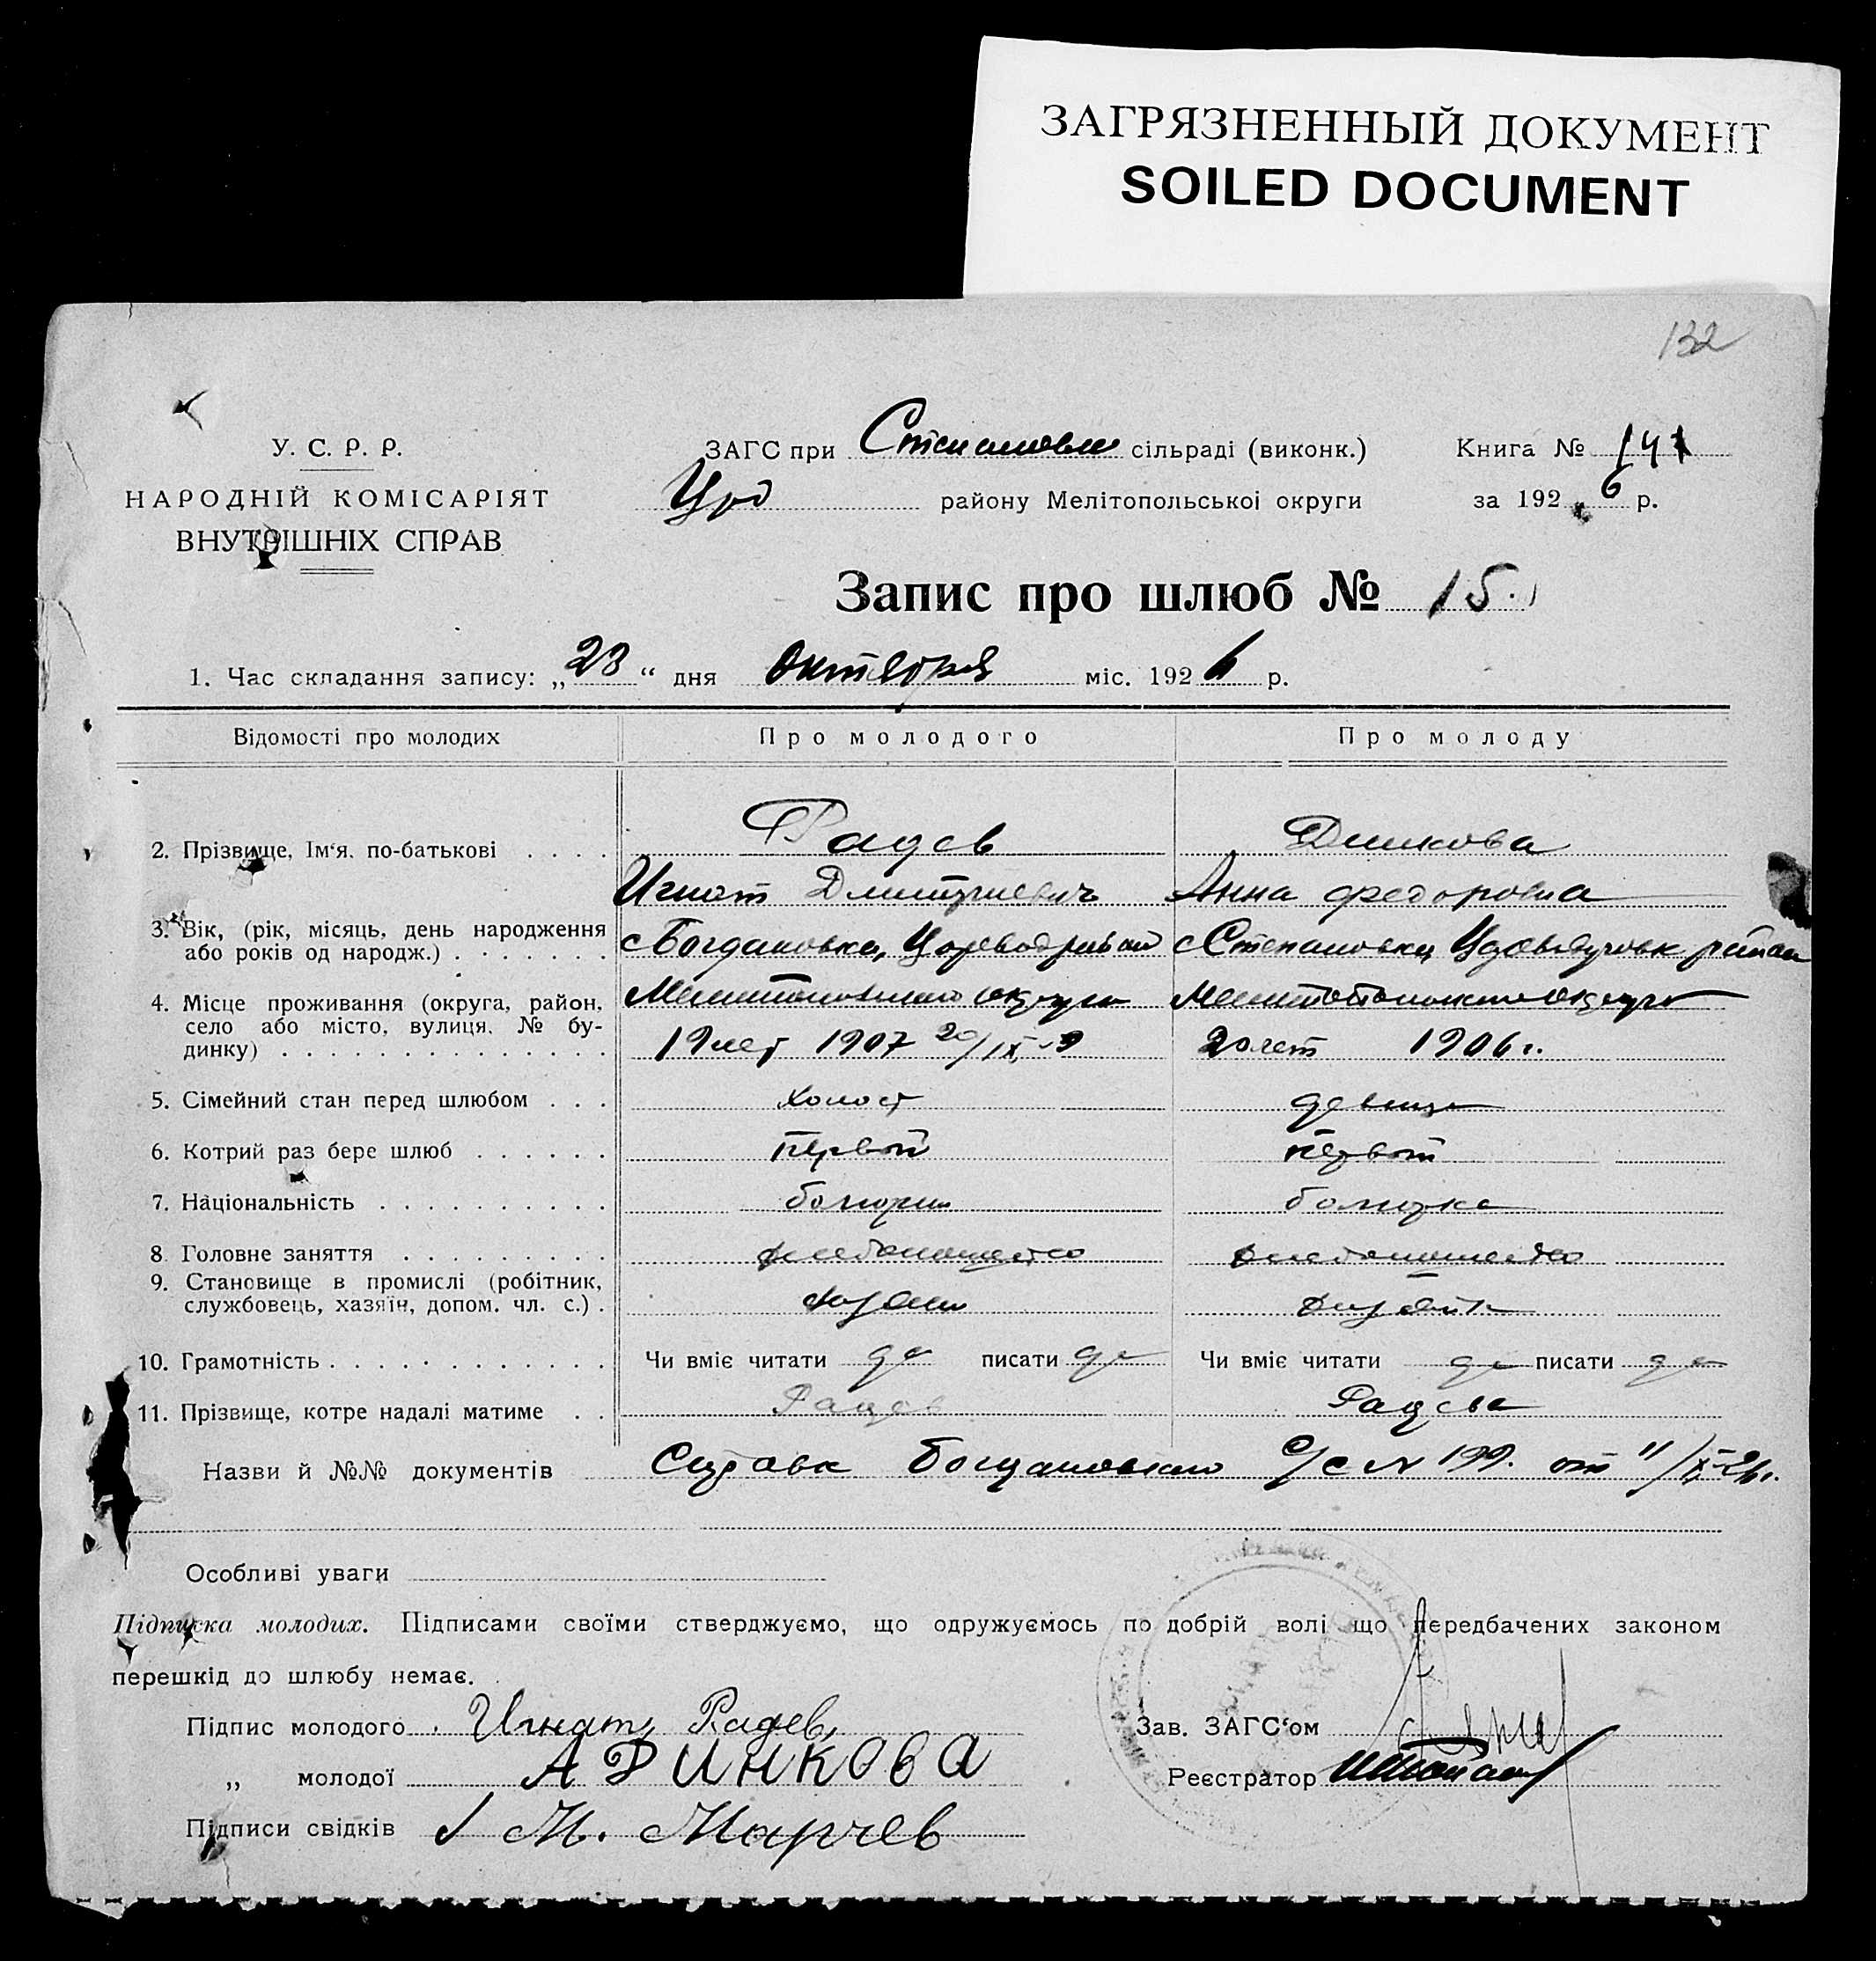 ЗАГРЯЗНЕННЫЙ ДОКУМЕНТ
SOILED DOCUMENT
132
У. С. Р. Р.
НАРОДНІЙ КОМІСАРІЯТ
ВНУТРІШНІХ СПРАВ
ЗАГС при сільраді (виконк.)
району Мелітопольської округи
Книга № 141
за 192 6 р.
Запис про шлюб № 15.
1. Час складання запису: „23“ дня октября міс. 1926 р.
Відомості про молодих Про молодого Про молоду
2. Прізвище, Ім'я, по-батькові . . . . Радев Динкова
Игнат Дмитриевич Анна Федоровна
3. Вік, (рік, місяць, день народження с Богдановка, с Степановка
або років од народж.) . . . . . . .
4. Місце проживання (округа, район, округа округа
село або місто, вулиця, № бу-
динку) . . . . . . . . . . . . . . 19 лет 1907 20/IX 20 лет 1906 г.
5. Сімейний стан перед шлюбом . . . холост девица
6. Котрий раз бере шлюб . . . . . . первый первый
7. Національність . . . . . . . . . . болгарин болгарка
8. Головне заняття . . . . . . . . . хлебопашество хлебопашество
9. Становище в промислі (робітник,
службовець, хазяїн, допом. чл. с.) . хозяин
10. Грамотність . . . . . . . . . . . . Чи вміє читати да писати да Чи вміє читати да писати да
11. Прізвище, котре надалі матиме . . Радев Радева
Назви й №№ документів Справка Богдановского С/С № 199. от 11/X-26 г.
Особливі уваги
Підписка молодих. Підписами своїми стверджуємо, що одружуємось по добрій волі що передбачених законом
перешкід до шлюбу немає.
Підпис молодого Игнат Радев
„ молодої А ДИНКОВА
Підписи свідків М. Марчев
Зав. ЗАГС'ом
Реєстратор